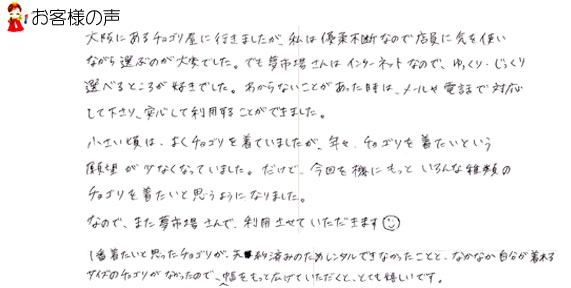 お客様の声
大阪にあるチョゴリ屋に行きましたが、私は優柔不断なので店員に気を使い
ながら選ぶのが大変でした。でも夢市場さんはインターネットなので、ゆっくり・じっくり
選べるところが好きでした。わからないことがあった時は、メールや電話で対応
して下さり、安心して利用することができました。
小さい頃は、よくチョゴリを着ていましたが、年々、チョゴリを着たいという
願望が少なくなっていました。だけど、今回を機にもっといろんな種類の
チョゴリを着たいと思うようになりました。
なので、また夢市場さんで、利用させていただきます
1番着たいと思ったチョゴリが、予約済みのためレンタルできなかったことと、なかなか自分が着れる
サイズのチョゴリがなかったので、幅をもっと広げていただくと、とても嬉しいです。